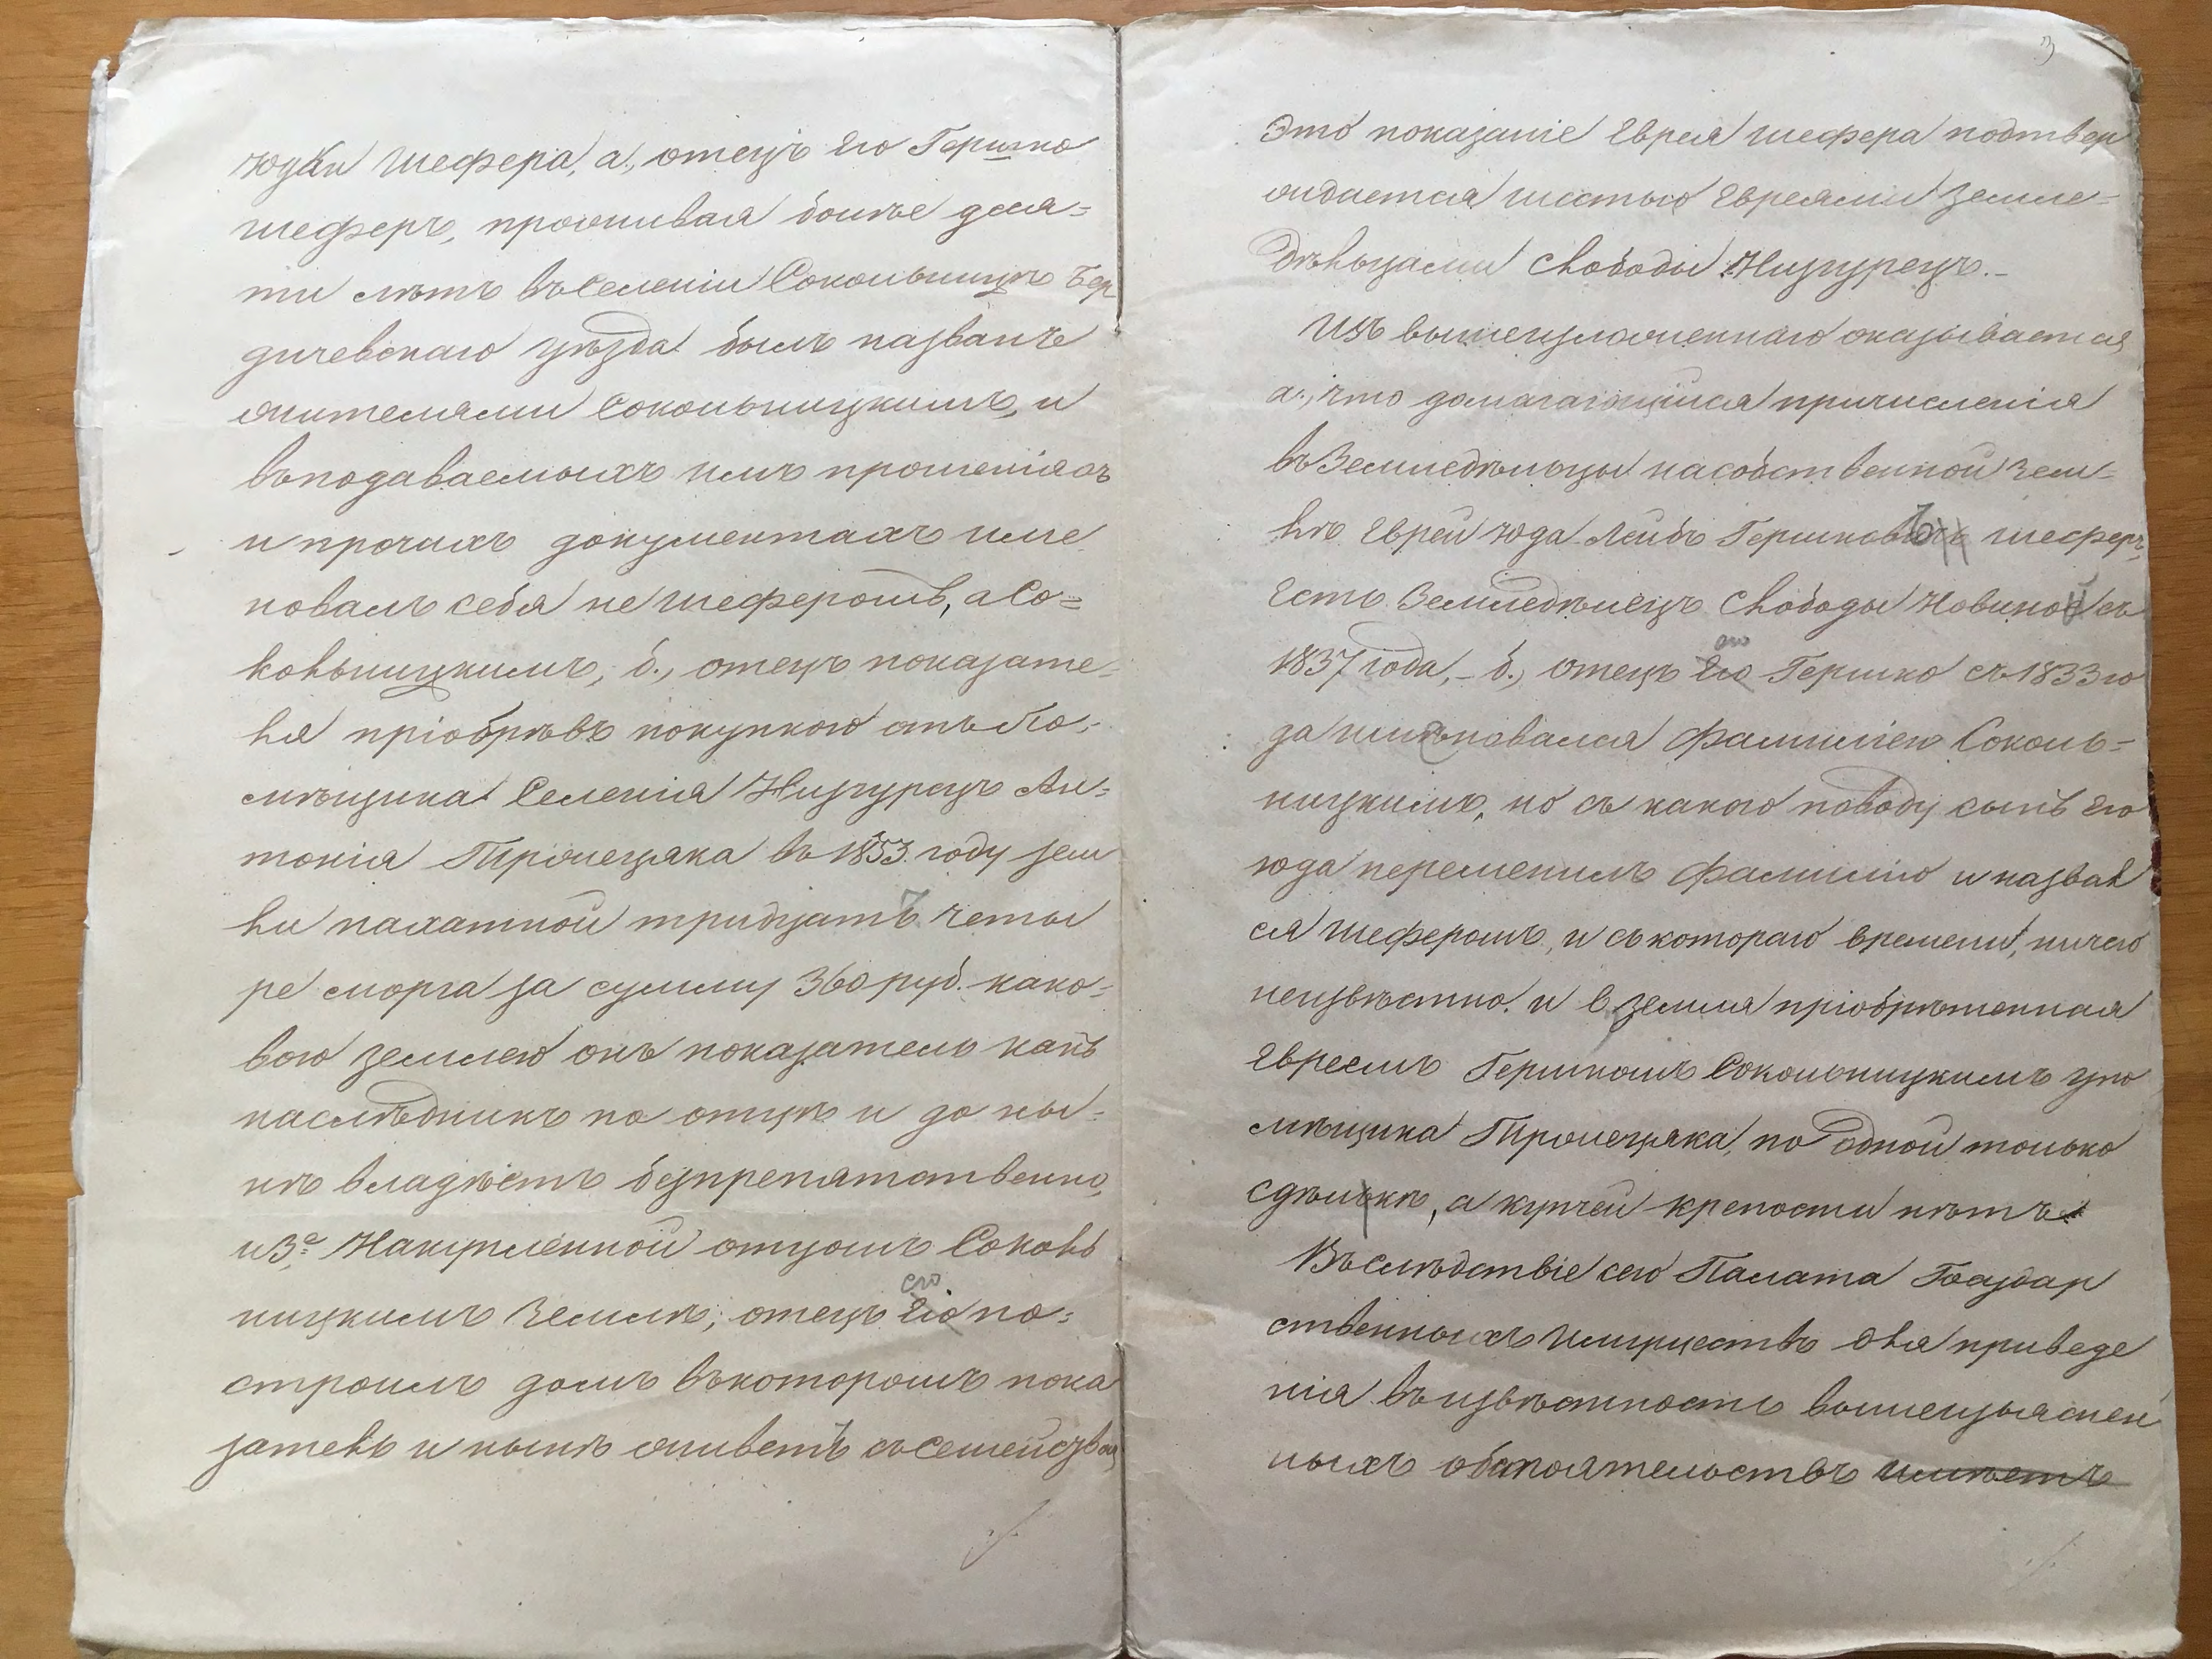 юдки Шефера, а., отецъ Его Гершко
Шеферъ, проживая более деся=
ти летъ въ Селеніи Сокольницъ Бер
дичевскаго уѣзда былъ названъ
жителями Сокольницкимъ, и
въ подаваемыхъ имъ прошеніяхъ
и прочихъ документахъ име
новалъ себя не Шеферомъ, а Со=
кольницкимъ, б., отецъ показате=
ля пріобрѣвъ покупкою отъ По=
мѣщика Селенія Низгурецъ Ан=
тонія Трожецяка въ 1853 году зем
ли пахатной тридцать четы
ре морга за сумму 360 руб. како=
вою землею онъ показатель какъ
наслѣдникъ по отцѣ и до ны=
нѣ владѣетъ безпрепятственно,
и 3.е На купленной отцомъ Соколь
ницкимъ землѣ, отецъ его по=
строилъ домъ въ которомъ пока
затель и нынѣ живетъ съ семействомъ
3
Это показаніе Еврея Шефера подтвер
ждается шестью Евреями Земле=
дѣльцами Слободы Низгурецъ.-
Изъ вышеизложеннаго оказывается
а., что домагающійся причисленія
въ Земледѣльцы на собственной зем=
лѣ Еврей Юда Лейбъ Гершковъ Шеферъ,
Есть Земледѣлецъ Слободы Новикой съ
1837 года,- б., отецъ его Гершко съ 1833 го
да именовался фамиліею Соколь=
ницкимъ, но съ какого поводу сынъ Его
Юда переменилъ фамилію и назвал
ся Шеферомъ, и съ котораго времени, ничего
неизвѣстно. и в. земля пріобрѣтенная
Евреемъ Гершкомъ Сокольницкимъ у по
мѣщика Трожецяка, по одной только
сдѣлкѣ, а купчей крепости нѣтъ
Въ слѣдствіе сего Палата Государ
ственныхъ Имуществъ для приведе
нія въ извѣстность вышеизъяснен
ныхъ обстоятельствъ имѣетъ